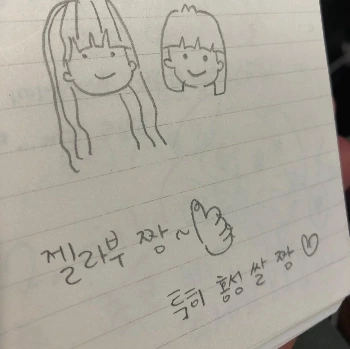 젤라부 짱~
특히 홍성 쌀 짱♡